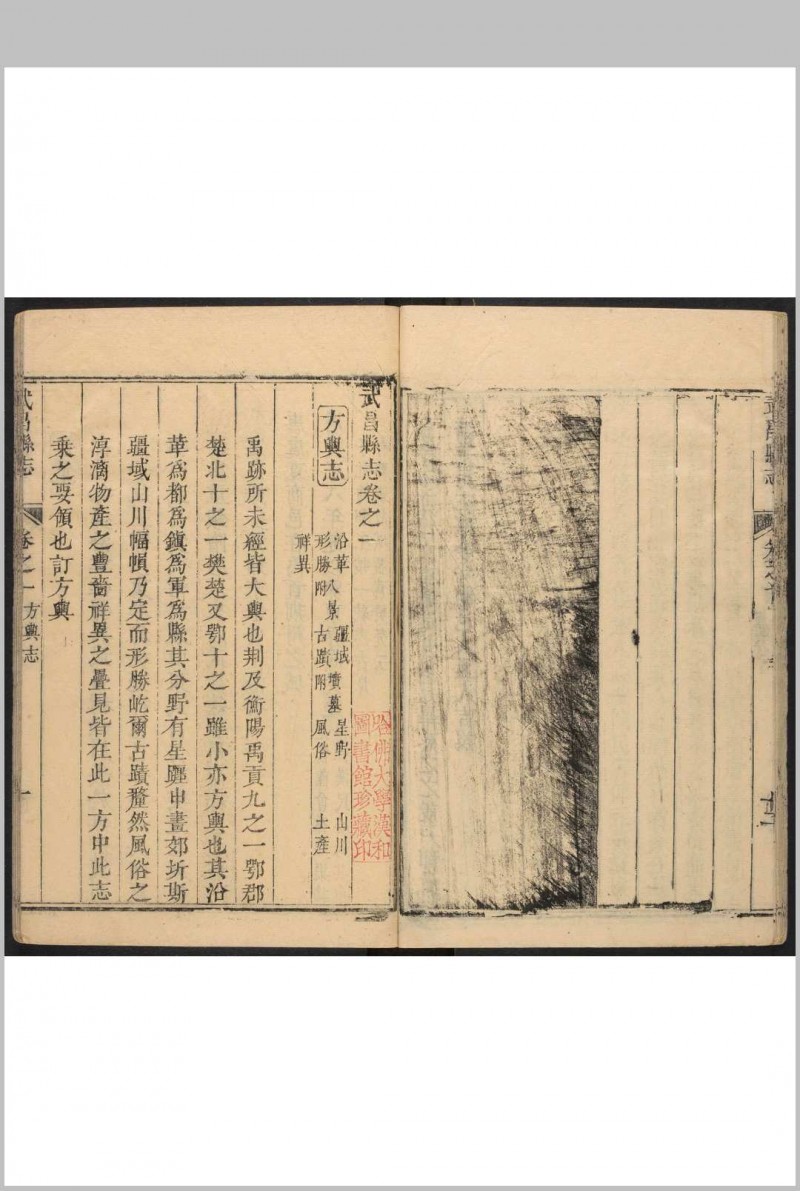 武昌縣志
武昌縣志卷之一
方輿志
沿革 疆域 星野 山川
形勝附八景 古蹟附墳墓 風俗 土產
祥異
哈佛大學漢和
圖書館珍藏印
禹跡所未經皆大輿也荆及衡陽禹貢九之一鄂郡
楚北十之一樊楚又鄂十之一雖小亦方輿也其沿
革爲都爲鎭爲軍爲縣其分野有星躔申畫郊圻斯
疆域山川幅幀乃定而形勝屹爾古蹟犛然風俗之
淳漓物產之豐嗇祥異之疊見皆在此一方中此志
乗之要領也訂方輿
武昌縣志
卷之一
方輿志
一